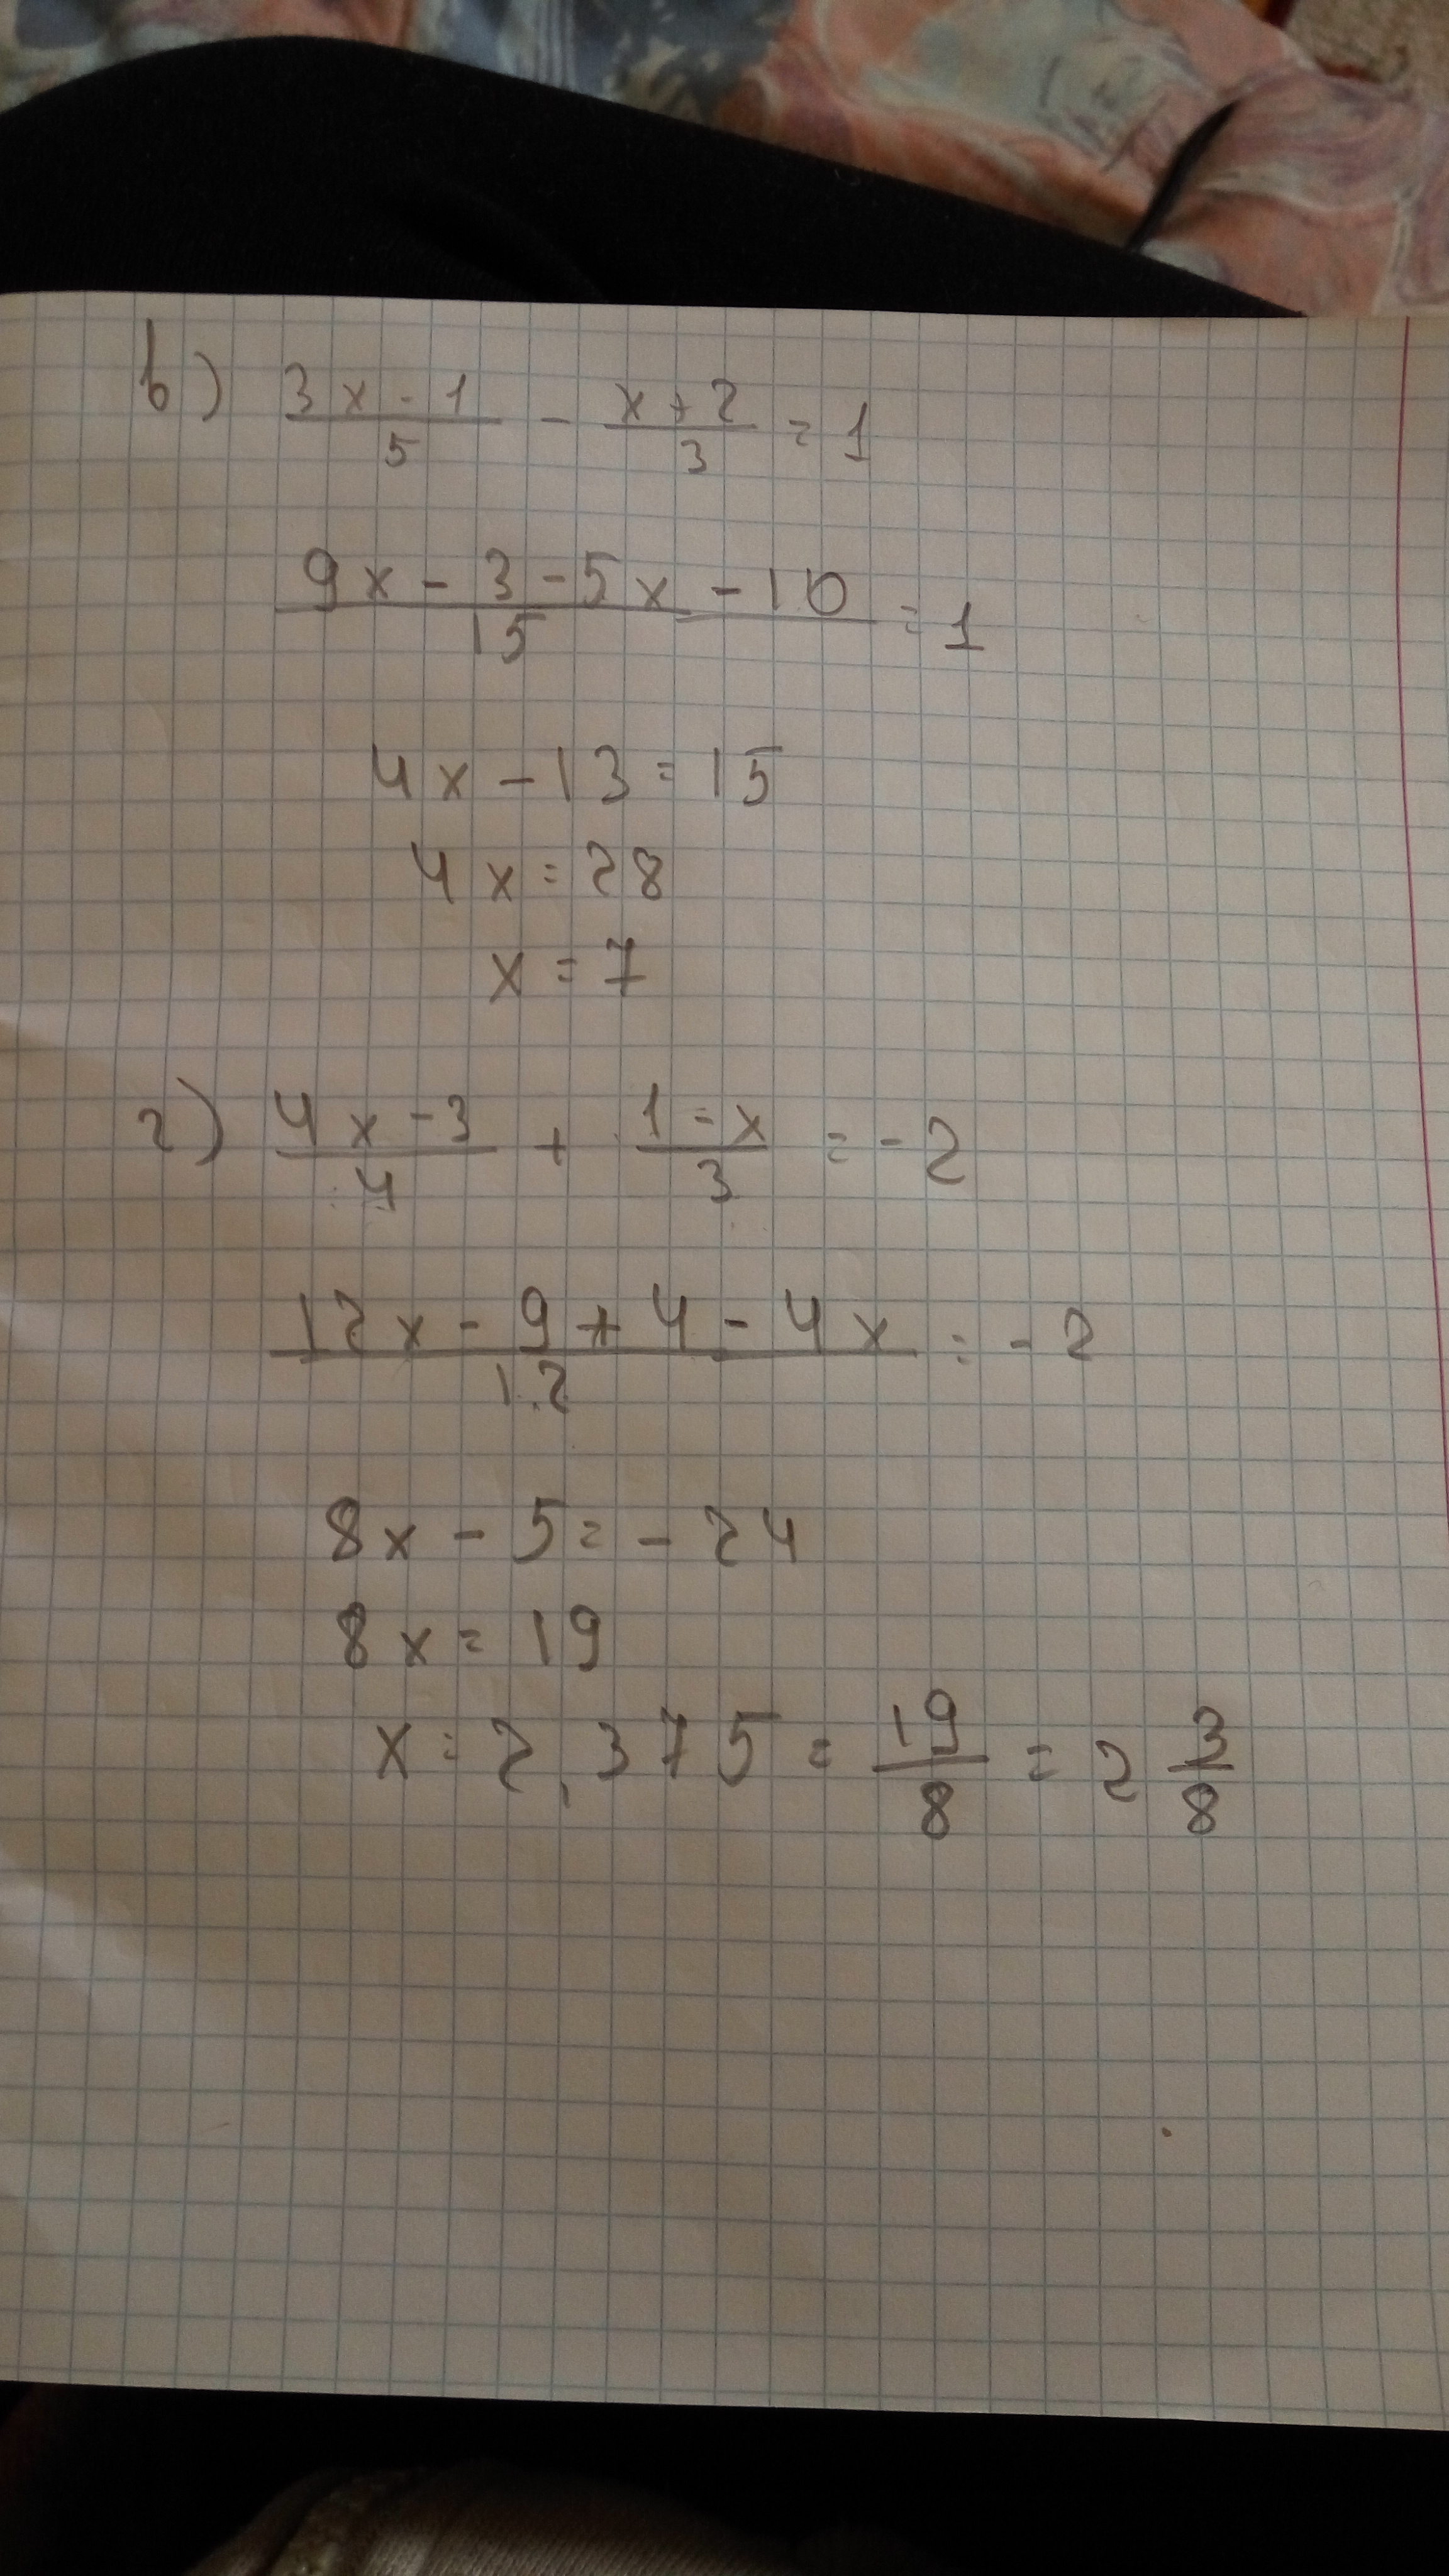 в) (3x-1)/5 - (x+2)/3 = 1
(9x-3-5x-10)/15 = 1
4x-13=15
4x=28
x=7
г) (4x-3)/4 + (1-x)/3 = -2
(12x-9+4-4x)/12 = -2
8x-5=-24
8x=19
x=2,375 = 19/8 = 2 3/8